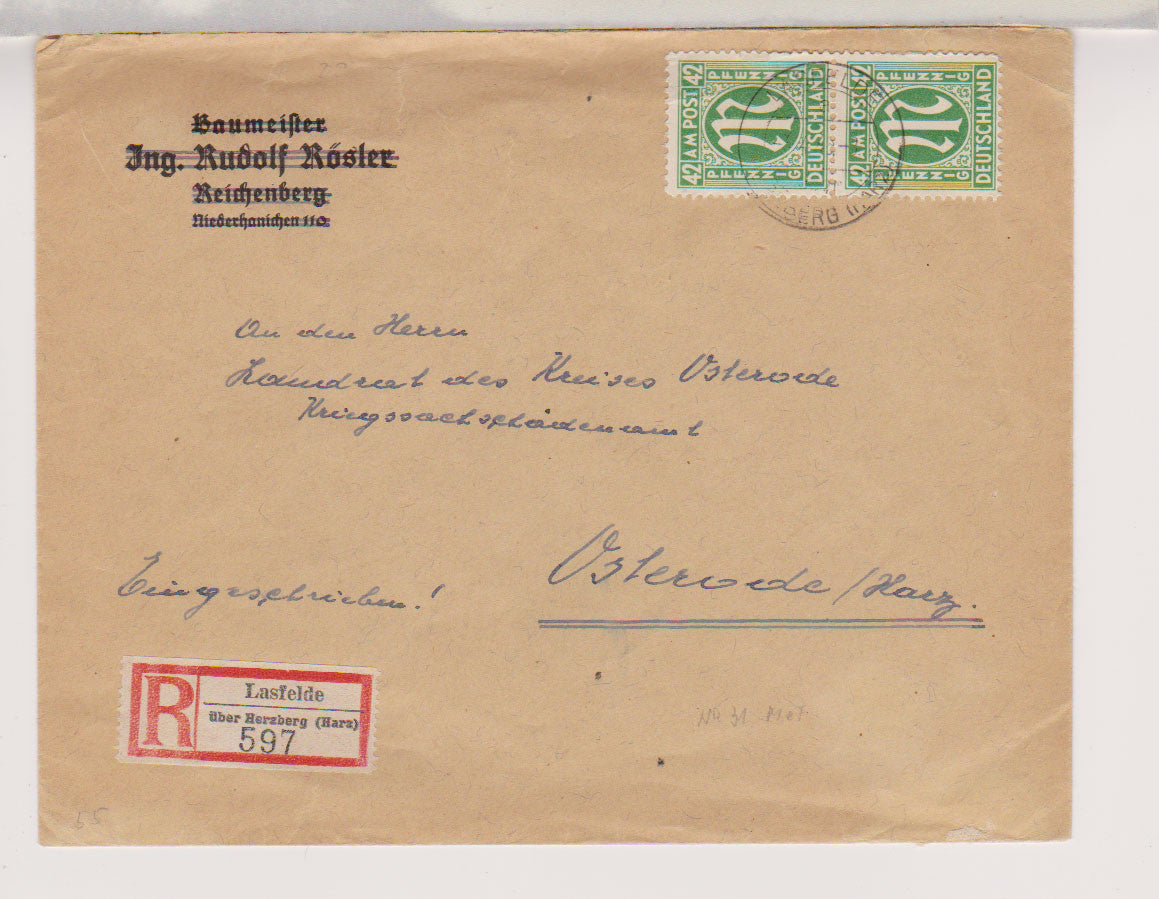 Baumeister
Ing. Rudolf Rösler
Reichenberg
Niederhanichen 110
42 AM POST 42
PFENNIG
PFENNIG
DEUTSCHLAND
42 AM POST
PFENNIG
PFENNIG
DEUTSCHLAND
BERG (HARZ)
An den Herrn
Landrat des Kreises Osterode
Kriegssachschädenamt
Osterode/Harz.
Eingeschrieben!
R
Lasfelde
über Herzberg (Harz)
597
55